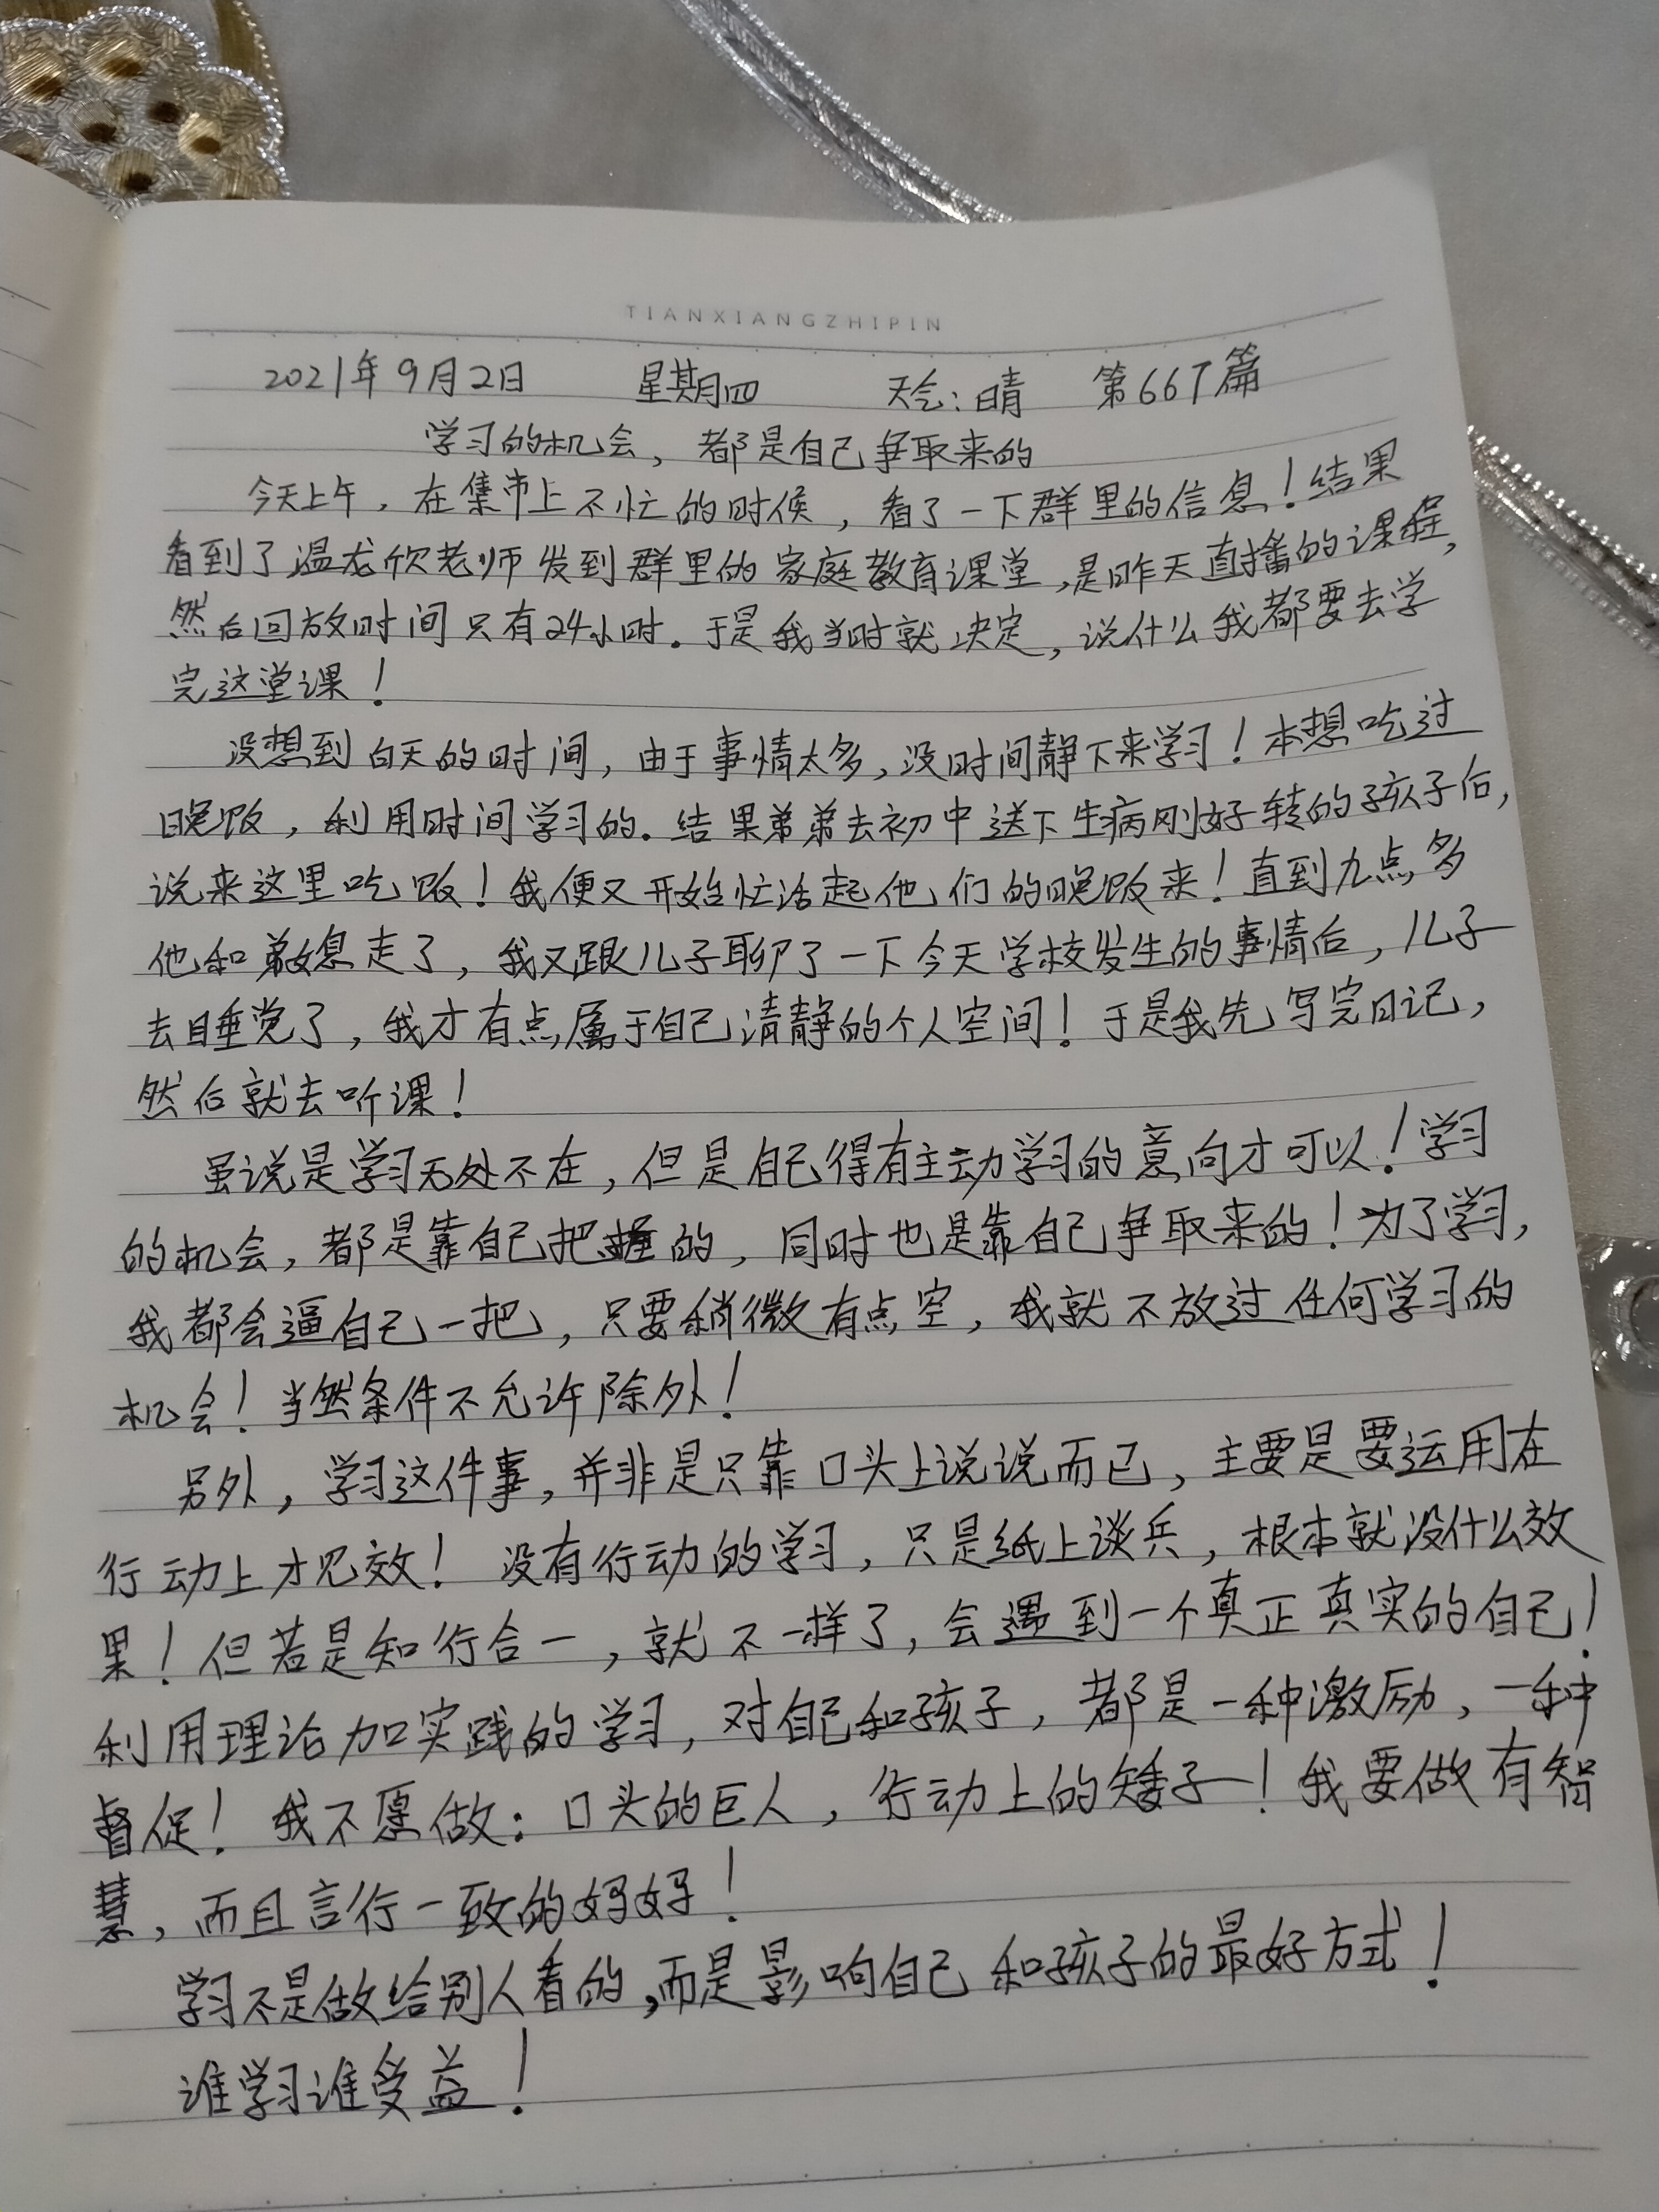 TIANXIANGZHIPIN
2021年9月2日 星期四 天气:晴 第667篇
学习的机会,都是自己争取来的
今天上午,在集市上不忙的时候,看了一下群里的信息!结果
看到了温龙欣老师发到群里的家庭教育课堂,是昨天直播的课程,
然后回放时间只有24小时。于是我当时就决定,说什么我都要去学
完这堂课!
没想到白天的时间,由于事情太多,没时间静下来学习!本想吃过
晚饭,利用时间学习的。结果弟弟去初中送下生病刚好转的孩子后,
说来这里吃饭!我便又开始忙活起他们的晚饭来!直到九点多
他和弟媳走了,我又跟儿子聊了一下今天学校发生的事情后,儿子
去睡觉了,我才有点属于自己清静的个人空间!于是我先写完日记,
然后就去听课!
虽说是学习无处不在,但是自己得有主动学习的意向才可以!学习
的机会,都是靠自己把握的,同时也是靠自己争取来的!为了学习,
我都会逼自己一把,只要稍微有点空,我就不放过任何学习的
机会!当然条件不允许除外!
另外,学习这件事,并非是只靠口头上说说而已,主要是要运用在
行动上才见效!没有行动的学习,只是纸上谈兵,根本就没什么效
果!但若是知行合一,就不一样了,会遇到一个真正真实的自己!
利用理论加实践的学习,对自己和孩子,都是一种激励,一种
督促!我不愿做:口头的巨人,行动上的矮子!我要做有智
慧,而且言行一致的妈妈!
学习不是做给别人看的,而是影响自己和孩子的最好方式!
谁学习谁受益!